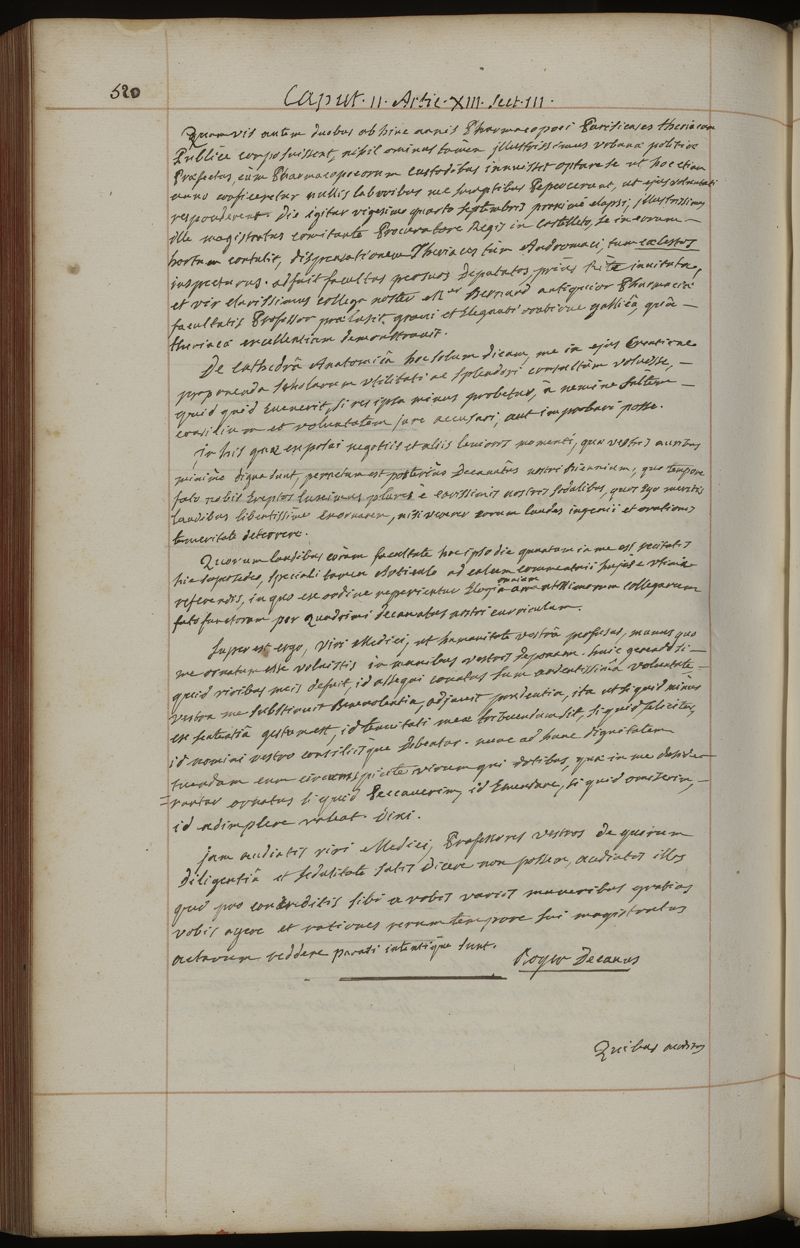 520
Caput. II. Artic. XIII. Sect. III.
Quamvis autem duobus abhinc annis Pharmacopoei Parisienses theriacam
Publice composuissent, nihil ominus tamen illustrissimus urbanae politiae
Praefectus, cum Pharmacopoeorum custodibus innuisset optare se ut hoc etiam
anno conficeretur nullis laboribus nec sumptibus Pepercerunt, ut ejus voluntati
responderent. Die igitur vigesimo quarto septembris proximè elapsi, illustrissimus
ille magistratus comitante Procuratore Regis in Castelleto, se in eorum
hortum contulit, dispensationem Theriaces tùm Andromaci, tum caelestis
inspecturus. adfuit facultas per suos Deputatos, priùs Ritè invitata,
et vir clarissimus collega noster Mer Bernard antiquior Pharmaciae
facultatis Professor praelusit, gravi et Eleganti oratione gallicâ, quâ
theriacae excellentiam demonstravit.
De Cathedrâ Anatomicâ hoc solum dicam, me in ejus Creatione
proponenda scholarum Utilitati ac splendori consultum voluisse,
quid quid Evenerit, si res ipsa minus probetur, à nemine saltem
consilium et voluntatem jure accusari, aut improbari posse.
In his quae exposui negotiis et aliis levioris momenti, quae vestris auribus
minimè digna sunt, peractum est posterius Decanatûs nostri biennium, quo tempore
fato nobis Ereptos luximus plures è carissimis nostris sodalibus, quos Ego meritis
laudibus libentissimè exornarem, nisi vererer eorum laudes ingenii et orationis
temeritate deterere.
Quorum laudibus coram facultate hoc ipso die quantum in me est recitatis
hic supersedeo, speciali tamen Articulo ad calcem commentarii hujusce
referendis, in quo ex ordine reperientur Elogia omnium amantissimorum collegarum
fato functorum per quadrimi decanatus nostri curriculum.
Superest ergo, Viri Medici, ut humanitate vestrâ profusus, munus quo
me ornatum esse voluistis in manibus vestris deponam. huic gerendo si
quid viribus meis defuit, id assequi conatus sum ardentissimâ voluntate,
vestra me sustinuit Benevolentia, adjuvit prudentia, ita ut si quid minùs
ex sententiâ gestum est, id tenuitati meae tribuendum sit, si quid feliciter,
id nomini vestro consiliisque Debeatur. nunc ad hanc dignitatem
tuendam eum circumspicite virum qui dotibus, quae in me deside-
rantur ornatus si quid Peccaverim, id Emendare, si quid omiserim,
id adimplere valeat. Dixi.
Jam audiatis viri Medici, Professores vestros de quorum
Diligentiâ et sedulitate satis dicere non possum, audiatis illos
quod pro concreditis sibi a vobis variis muneribus gratias
vobis agere et rationes rerum tempore sui magistratus
actarum reddere parati intentique sunt.
Roger Decanus
Quibus auditis